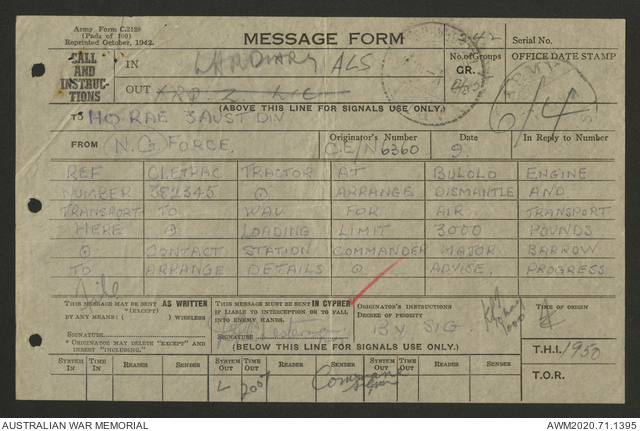 Army Form C.2128
(Pads of 100)
Reprinted October, 1942.
MESSAGE FORM
Serial No.
CALL AND INSTRUCTIONS
IN
ALS
No. of Groups
GR.
OFFICE DATE STAMP
OUT
6/4
(ABOVE THIS LINE FOR SIGNALS USE ONLY.)
TO HQ RAE 3 AUST DIV
FROM N.G. FORCE.
Originator's Number
CE/N6360
Date
9.
In Reply to Number
REF CLETRAC TRACTOR AT BULOLO ENGINE
NUMBER 382345 ⊙ ARRANGE DISMANTLE AND
TRANSPORT TO WAU FOR AIR TRANSPORT
HERE ⊙ LOADING LIMIT 3000 POUNDS
⊙ CONTACT STATION COMMANDER MAJOR BARROW
TO ARRANGE DETAILS ⊙ ADVISE PROGRESS
THIS MESSAGE MAY BE SENT AS WRITTEN
(*EXCEPT)
BY ANY MEANS ( ) WIRELESS
SIGNATURE
* ORIGINATOR MAY DELETE "EXCEPT" AND INSERT "INCLUDING."
THIS MESSAGE MUST BE SENT IN CYPHER
IF LIABLE TO INTERCEPTION OR TO FALL INTO ENEMY HANDS.
SIGNATURE
ORIGINATOR'S INSTRUCTIONS
DEGREE OF PRIORITY
BY SIG
TIME OF ORIGIN
T.H.I. 1950
(BELOW THIS LINE FOR SIGNALS USE ONLY.)
SYSTEM IN
TIME IN
READER
SENDER
SYSTEM OUT
TIME OUT
READER
SENDER
SYSTEM OUT
TIME OUT
READER
SENDER
T.O.R.
L
2007
AUSTRALIAN WAR MEMORIAL
AWM2020.71.1395